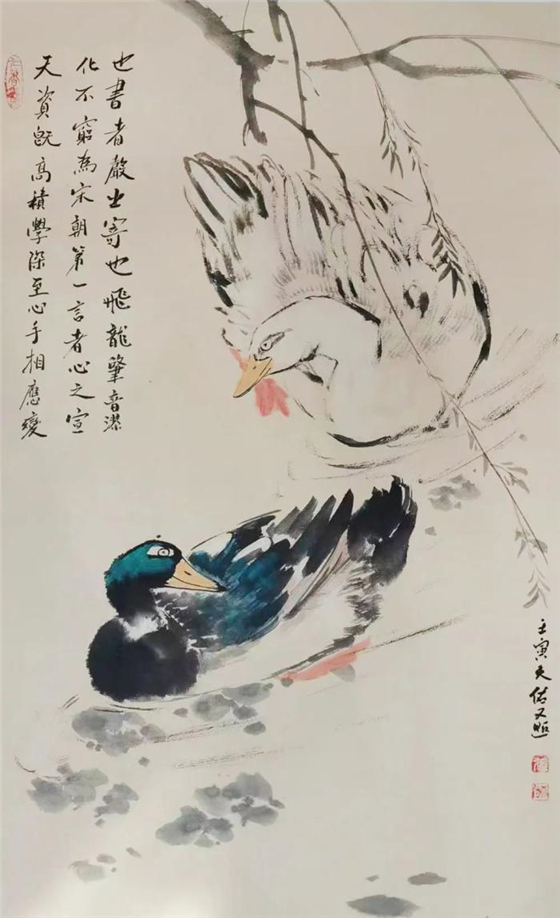 天資既高積學深至心手相應變
化不窮為宋朝第一言者心之宣
也書者聲之寄也飛龍肇音潔
壬寅天佑又